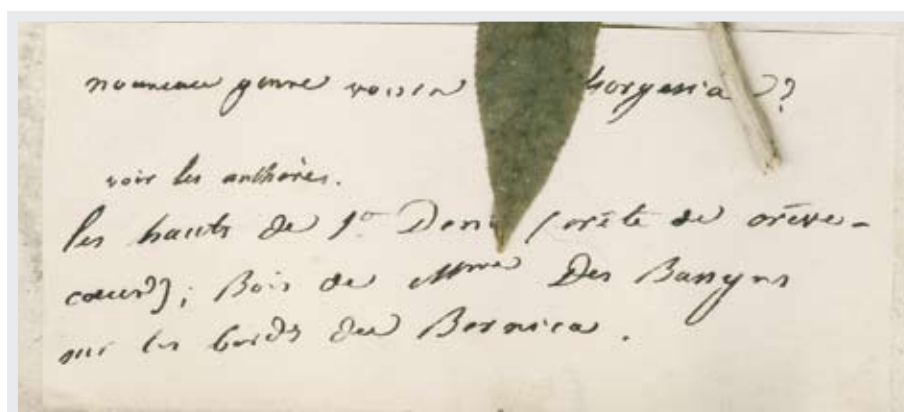 nouveau genre voisin horgesia ??
voir les anthères.
les hauts de St Deni (crête de crève-
cœur); Bois de Mme Des Bassyns
sur les bords du Bernica.